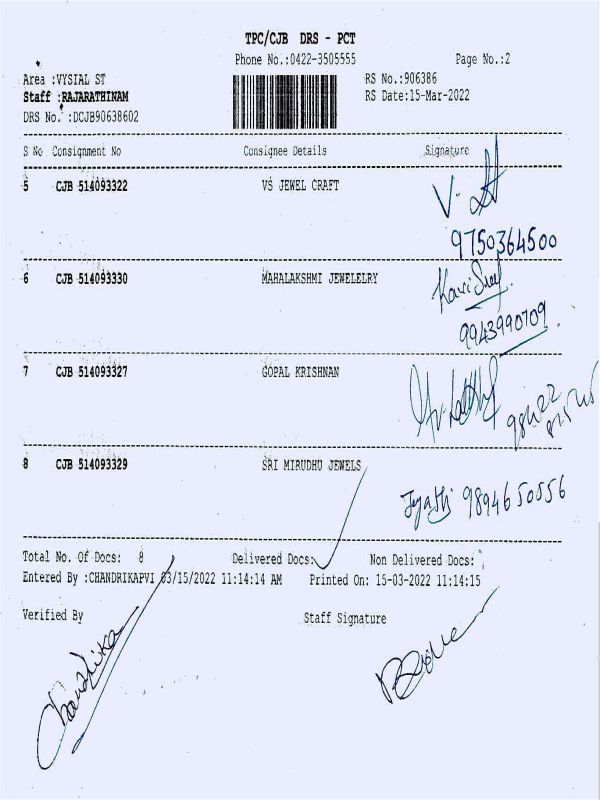 TPC/CJB DRS - PCT
Phone No.:0422-3505555 Page No.:2
Area :VYSIAL ST RS No.:906386
Staff :RAJARATHINAM RS Date:15-Mar-2022
DRS No. :DCJB90638602
S No Consignment No Consignee Details Signature
5 CJB 514093322 VS JEWEL CRAFT
9750364500
6 CJB 514093330 MAHALAKSHMI JEWELELRY
9943990709
7 CJB 514093327 GOPAL KRISHNAN
8 CJB 514093329 SRI MIRUDHU JEWELS
9894650556
Total No. Of Docs: 8 Delivered Docs: Non Delivered Docs:
Entered By :CHANDRIKAPVI 03/15/2022 11:14:14 AM Printed On: 15-03-2022 11:14:15
Verified By Staff Signature
Chandrika